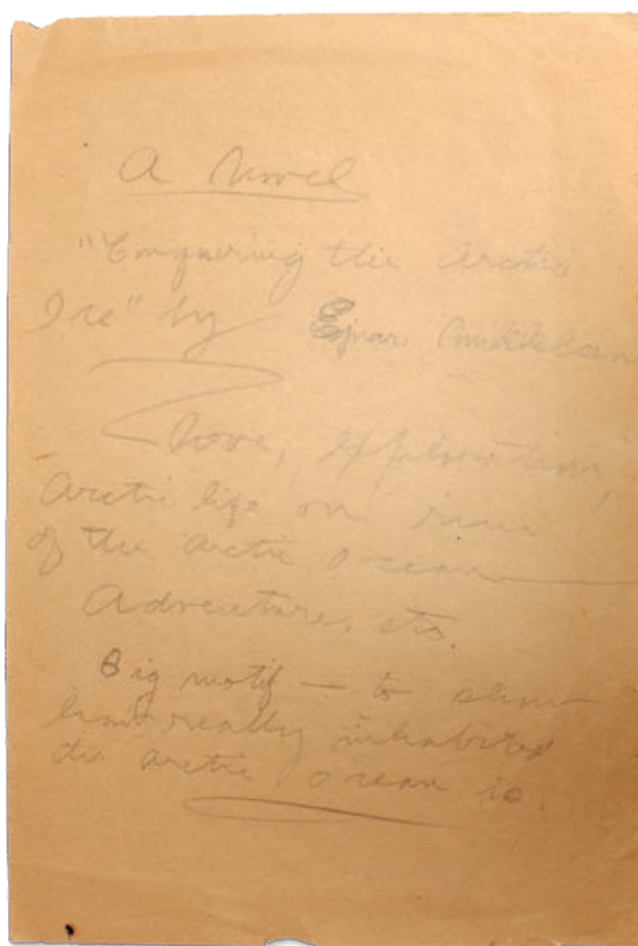 A Novel
"Conquering the Arctic
Ice" by Ejnar Mikkelsen
Love, exploration,
Arctic life on rim
of the Arctic Ocean
Adventure, etc.
Big motif — to show
how really inhabited
the Arctic Ocean is.